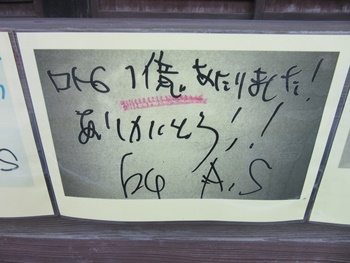 ロト6 1億あたりました!
ありがとう!!
by A.S
S